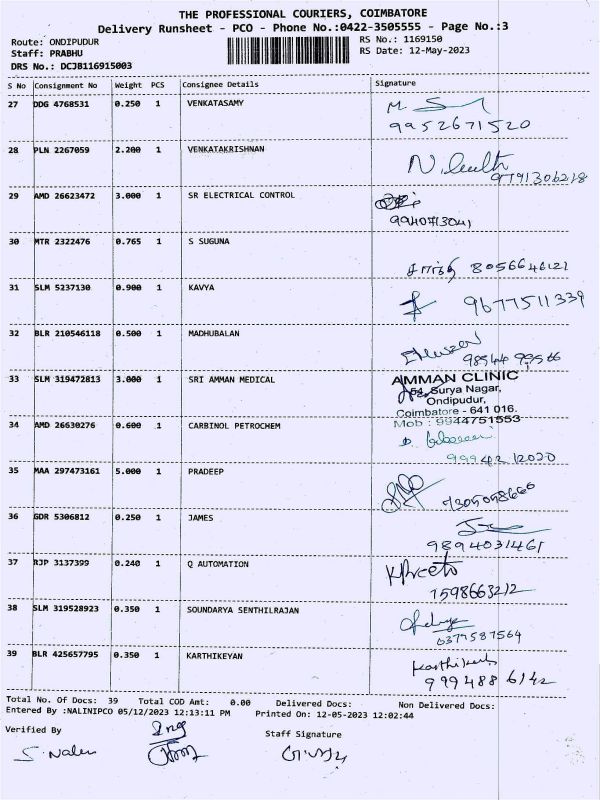 THE PROFESSIONAL COURIERS, COIMBATORE
Delivery Runsheet - PCO - Phone No.:0422-3505555 - Page No.:3
Route: ONDIPUDUR RS No.: 1169150
Staff: PRABHU RS Date: 12-May-2023
DRS No.: DCJB116915003
S No Consignment No Weight PCS Consignee Details Signature
27 DDG 4768531 0.250 1 VENKATASAMY
9952671520
28 PLN 2267059 2.200 1 VENKATAKRISHNAN
29 AMD 26623472 3.000 1 SR ELECTRICAL CONTROL
9940713041
30 MTR 2322476 0.765 1 S SUGUNA
8056646121
31 SLM 5237130 0.900 1 KAVYA
9677511339
32 BLR 210546118 0.500 1 MADHUBALAN
33 SLM 319472813 3.000 1 SRI AMMAN MEDICAL
AMMAN CLINIC
54, Surya Nagar,
Ondipudur,
Coimbatore - 641 016.
Mob : 9944751553
34 AMD 26630276 0.600 1 CARBINOL PETROCHEM
35 MAA 297473161 5.000 1 PRADEEP
36 GDR 5306812 0.250 1 JAMES
9894031461
37 RJP 3137399 0.240 1 Q AUTOMATION
38 SLM 319528923 0.350 1 SOUNDARYA SENTHILRAJAN
39 BLR 425657795 0.350 1 KARTHIKEYAN
999488 6142
Total No. Of Docs: 39 Total COD Amt: 0.00 Delivered Docs: Non Delivered Docs:
Entered By :NALINIPCO 05/12/2023 12:13:11 PM Printed On: 12-05-2023 12:02:44
Verified By Staff Signature